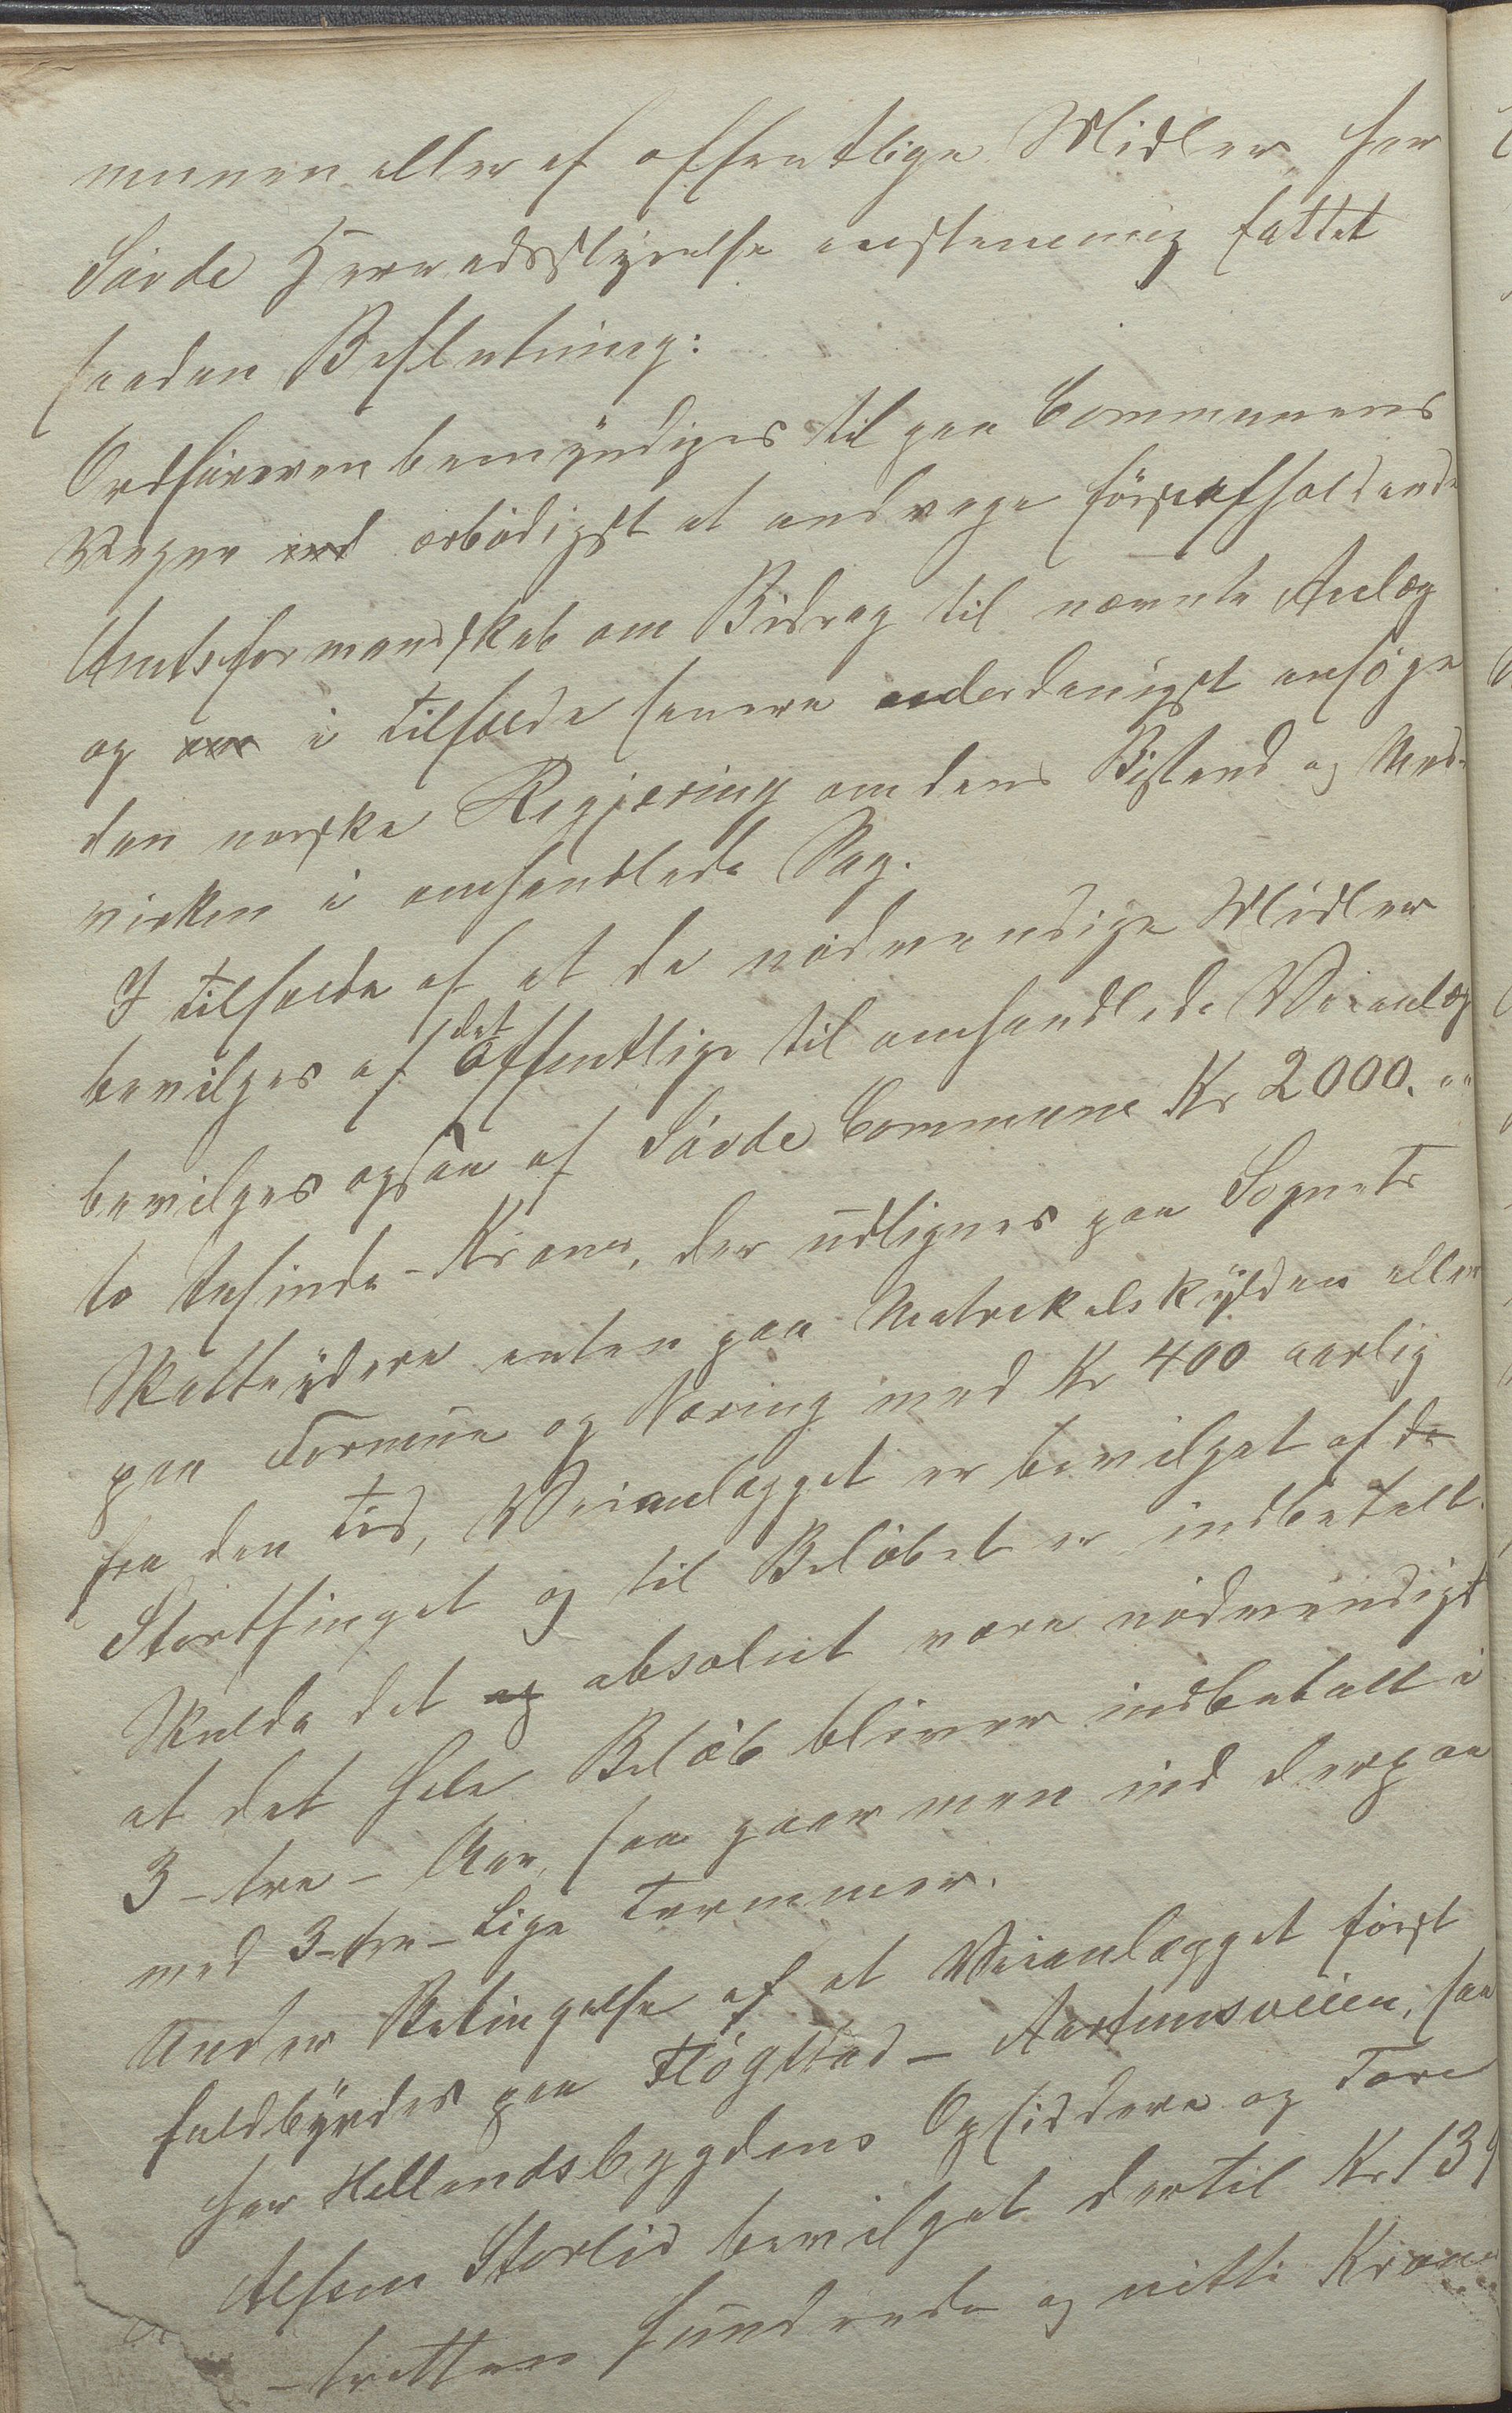 munen eller af offentlige Midler, har
Søvde Herredsstyrelse enstemmig fattet
saadan Beslutning:
Ordføreren bemyndiges til paa Communens
Vegne ærbødigst at andrage førstafholdende
Amtsformandskab om Bidrag til nævnte Anlæg
og i tilfælde senere underdanigst ansøge
den norske Regjering om dens Bistand og Med-
virken i omhandlede Sag.
I tilfælde af at de nødvendige Midler
bevilges af det Offentlige til omhandlede Veianlæg
bevilges ogsaa af Søvde Commune Kr 2000. "
to tusinde - Kroner, der udlignes paa Sognets
Skatteydere enten paa Matrikelskylden eller
paa Formue og Næring med Kr 400 aarlig
fra den tid, Veianlægget er bevilget af de
Storthinget og til Beløbet er indbetalt.
Skulde det absolut være nødvendigt
at det hele Beløb bliver indbetalt i
3 - tre - Aar, saa gaar man ind derpaa
med 3 - tre - lige Terminer.
Under Betingelse af at Veianlægget først
fuldbyrdes paa Fløgstad - Aartunsveien, har
har Hellandsbygdens Opsiddere og Tore
Storlid bevilget dertil Kr 139
- tretten hundrede og nitti Kroner